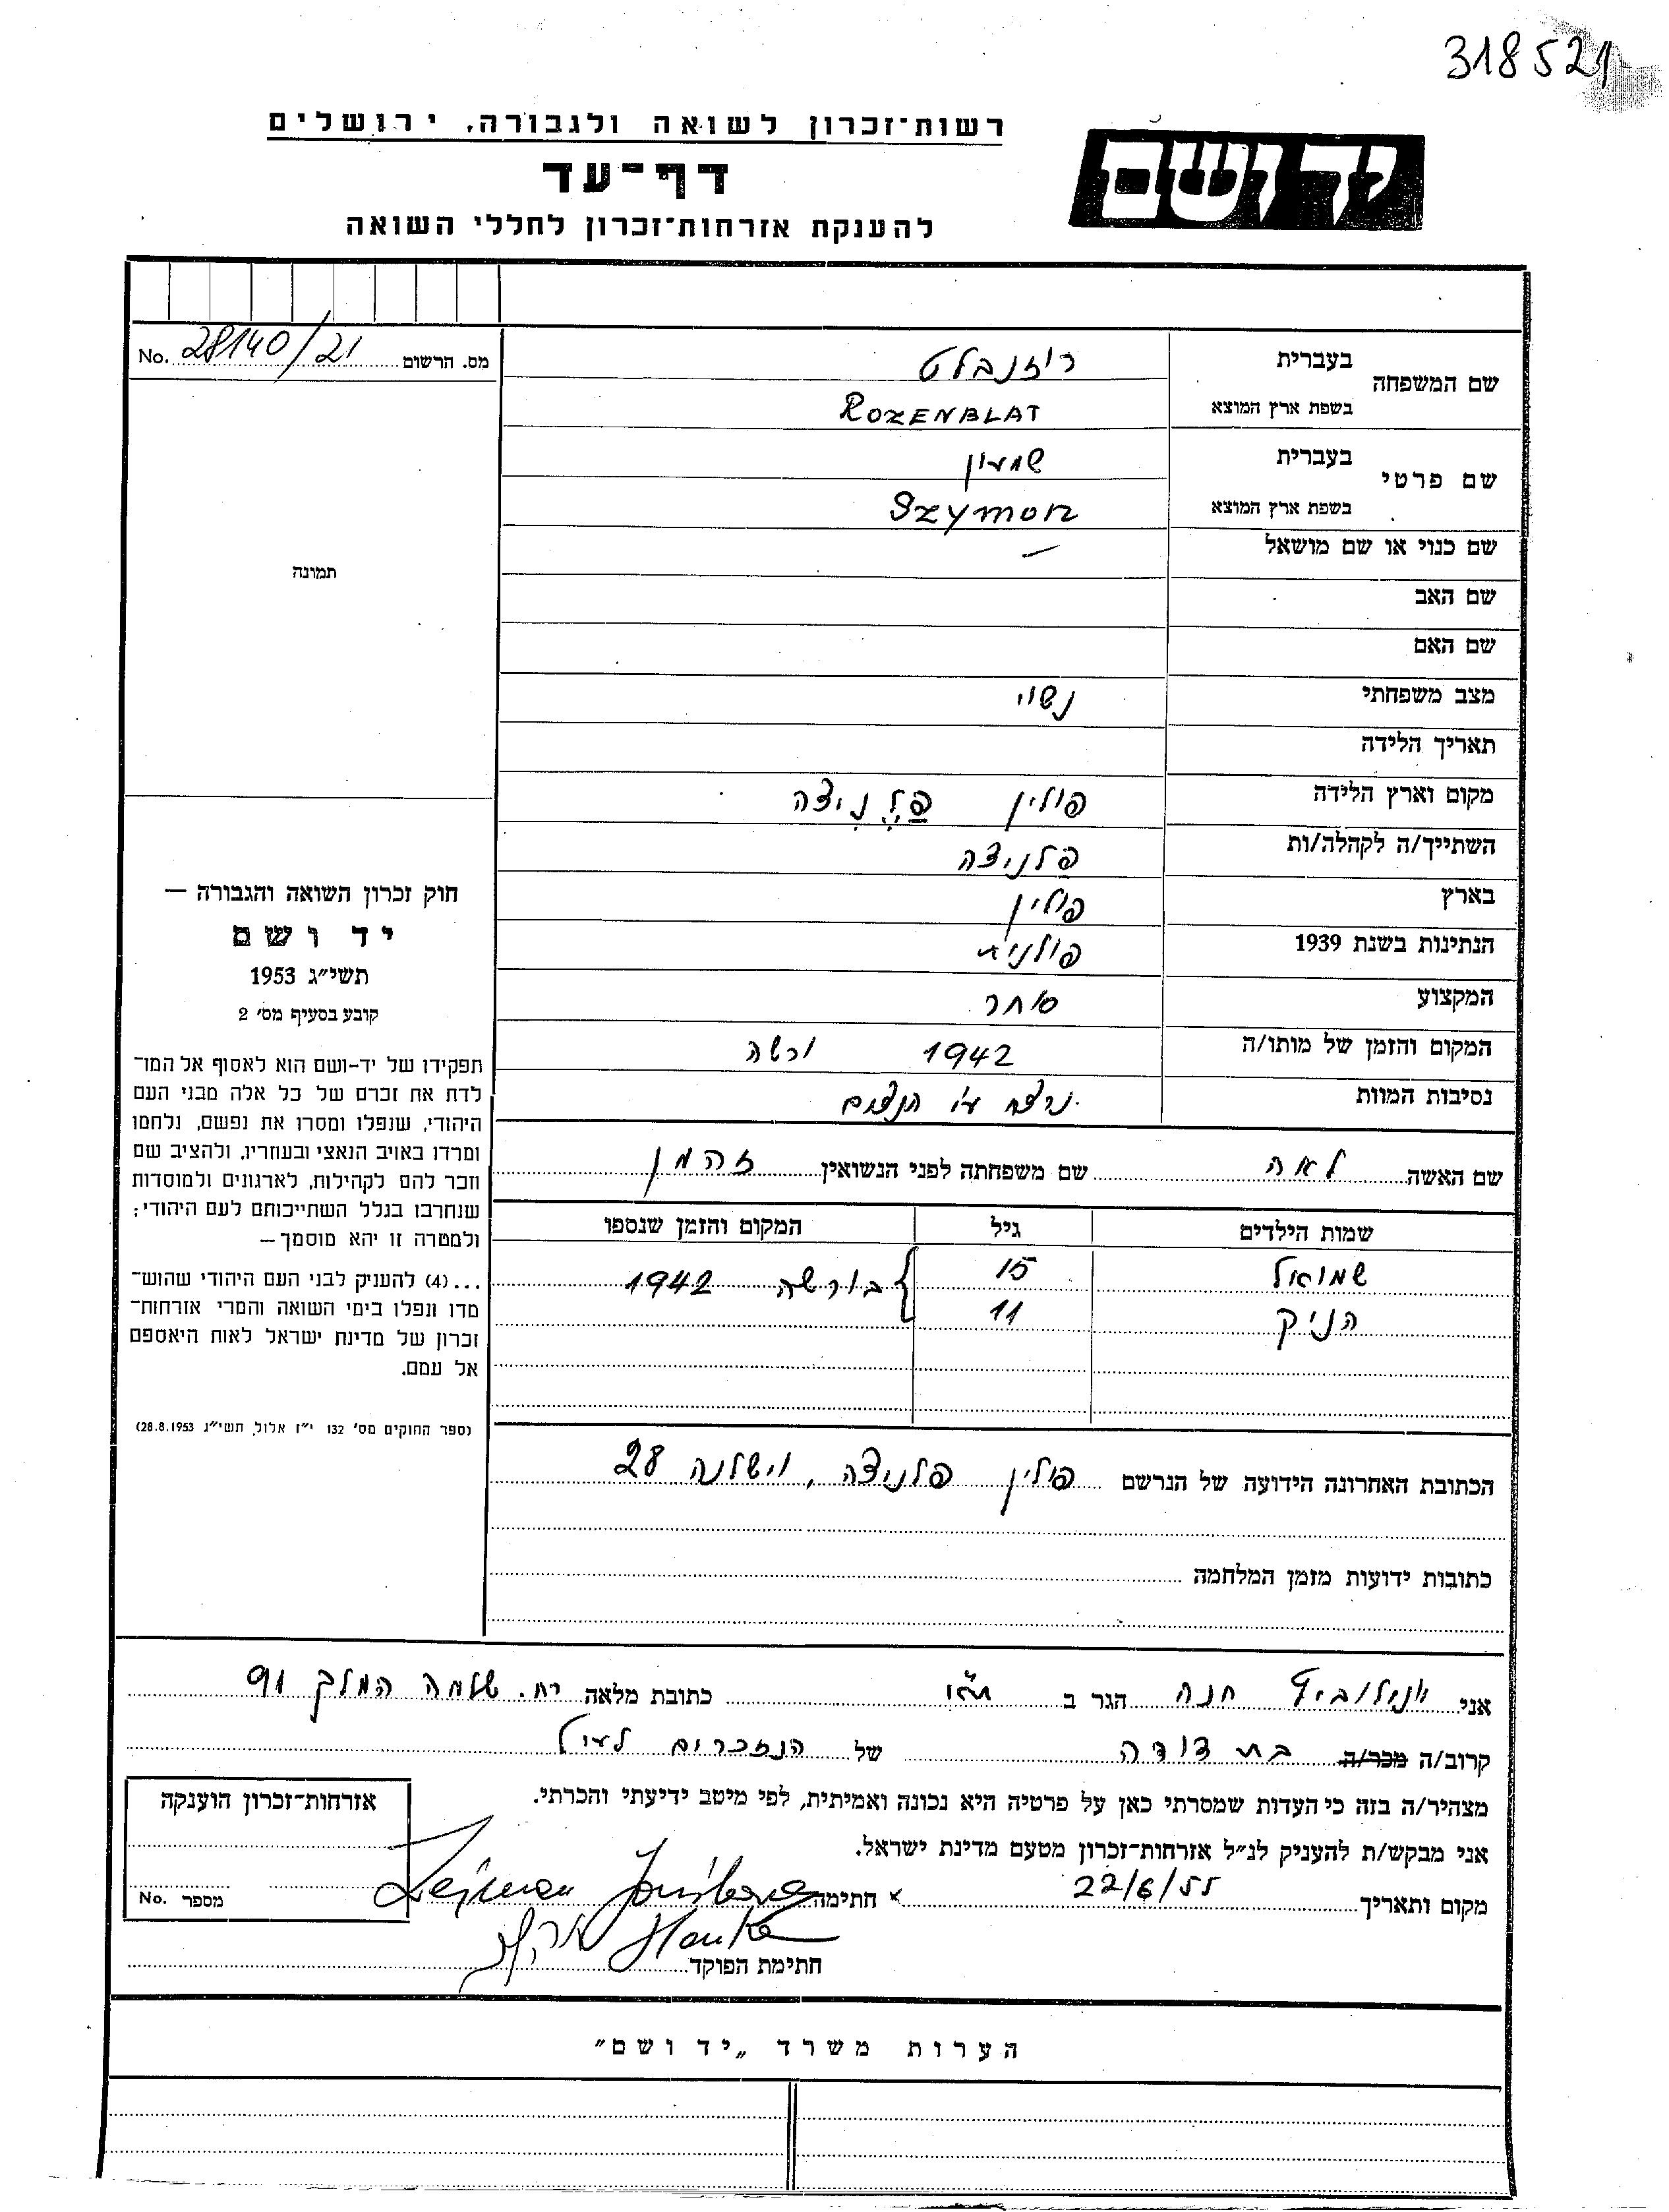 318521
רשות־זכרון לשואה ולגבורה, ירושלים
יד ושם
דף־עד
להענקת אזרחות־זכרון לחללי השואה
מס. הרשום 28140/21 No.
שם המשפחה
בעברית רוזנבלט
בשפת ארץ המוצא ROZENBLAT
שם פרטי
בעברית שמעון
בשפת ארץ המוצא Szymon
שם כנוי או שם מושאל –
שם האב
שם האם
מצב משפחתי נשוי
תאריך הלידה
מקום וארץ הלידה פולין פלניצה
השתייך/ה לקהלה/ות פלניצה
בארץ פולין
הנתינות בשנת 1939 פולנית
המקצוע סוחר
המקום והזמן של מותו/ה 1942 ורשה
נסיבות המוות נרצח ע"י הנצים
תמונה
חוק זכרון השואה והגבורה –
יד ושם
תשי״ג 1953
קובע בסעיף מס׳ 2
תפקידו של יד-ושם הוא לאסוף אל המו־
לדת את זכרם של כל אלה מבני העם
היהודי, שנפלו ומסרו את נפשם, נלחמו
ומרדו באויב הנאצי ובעוזריו, ולהציב שם
וזכר להם לקהילות, לארגונים ולמוסדות
שנחרבו בגלל השתייכותם לעם היהודי;
ולמטרה זו יהא מוסמך –
...(4) להעניק לבני העם היהודי שהוש־
מדו ונפלו בימי השואה והמרי אזרחות־
זכרון של מדינת ישראל לאות היאספם
אל עמם.
(ספר החוקים מס׳ 132 י״ז אלול, תשי״ג 28.8.1953)
שם האשה לאה שם משפחתה לפני הנשואין זהמן
שמות הילדים גיל המקום והזמן שנספו
שמואל 15 בורשה 1942
הניק 11
הכתובת האחרונה הידועה של הנרשם פולין פלניצה, וישלנה 28
כתובות ידועות מזמן המלחמה
אני חנה הגר ב ת"א כתובת מלאה רח. שלמה המלך 91
קרוב/ה מכר/ה בת דודה של הנזכרים לעיל
מצהיר/ה בזה כי העדות שמסרתי כאן על פרטיה היא נכונה ואמיתית, לפי מיטב ידיעתי והכרתי.
אני מבקש/ת להעניק לנ״ל אזרחות־זכרון מטעם מדינת ישראל.
מקום ותאריך 22/6/55 x חתימה
Hanka
חתימת הפוקד
אזרחות־זכרון הוענקה
מספר No.
הערות משרד „יד ושם״